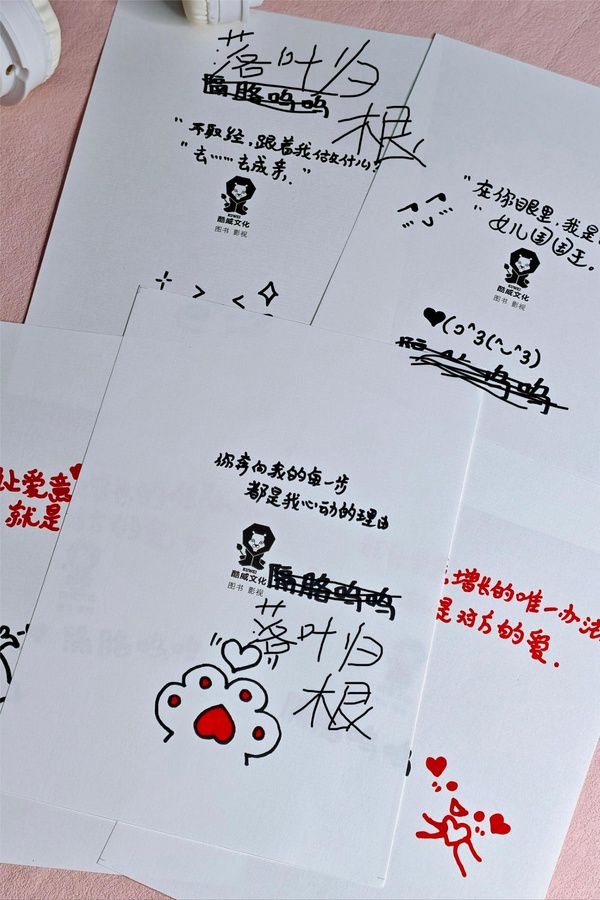 落叶归
根
隔胳呜呜
"不取经,跟着我做什么?
"去……去成亲."
KUWEI
酷威文化
图书 影视
"在你眼里,我是
"女儿国国王.
KUWEI
酷威文化
图书 影视
(ɔ^3(^~^3)
呜呜
你奔向我的每一步
都是我心动的理由
KUWEI
酷威文化
图书 影视
隔胳呜呜
落叶归
根
让爱意
就是
增长的唯一办法
是对方的爱.